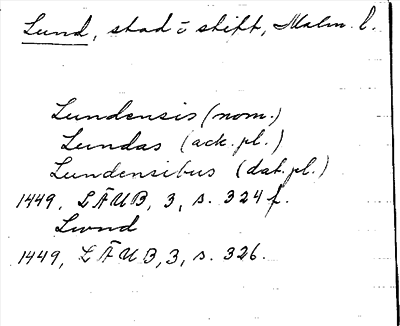 Lund, stad o stift, Malm. l.
Lundensis (nom.)
Lundas (ack. pl.)
Lundensibus (dat. pl.)
1449, LÄUB, 3, s. 324 f.
Lwnd
1449, LÄUB, 3, s. 326.